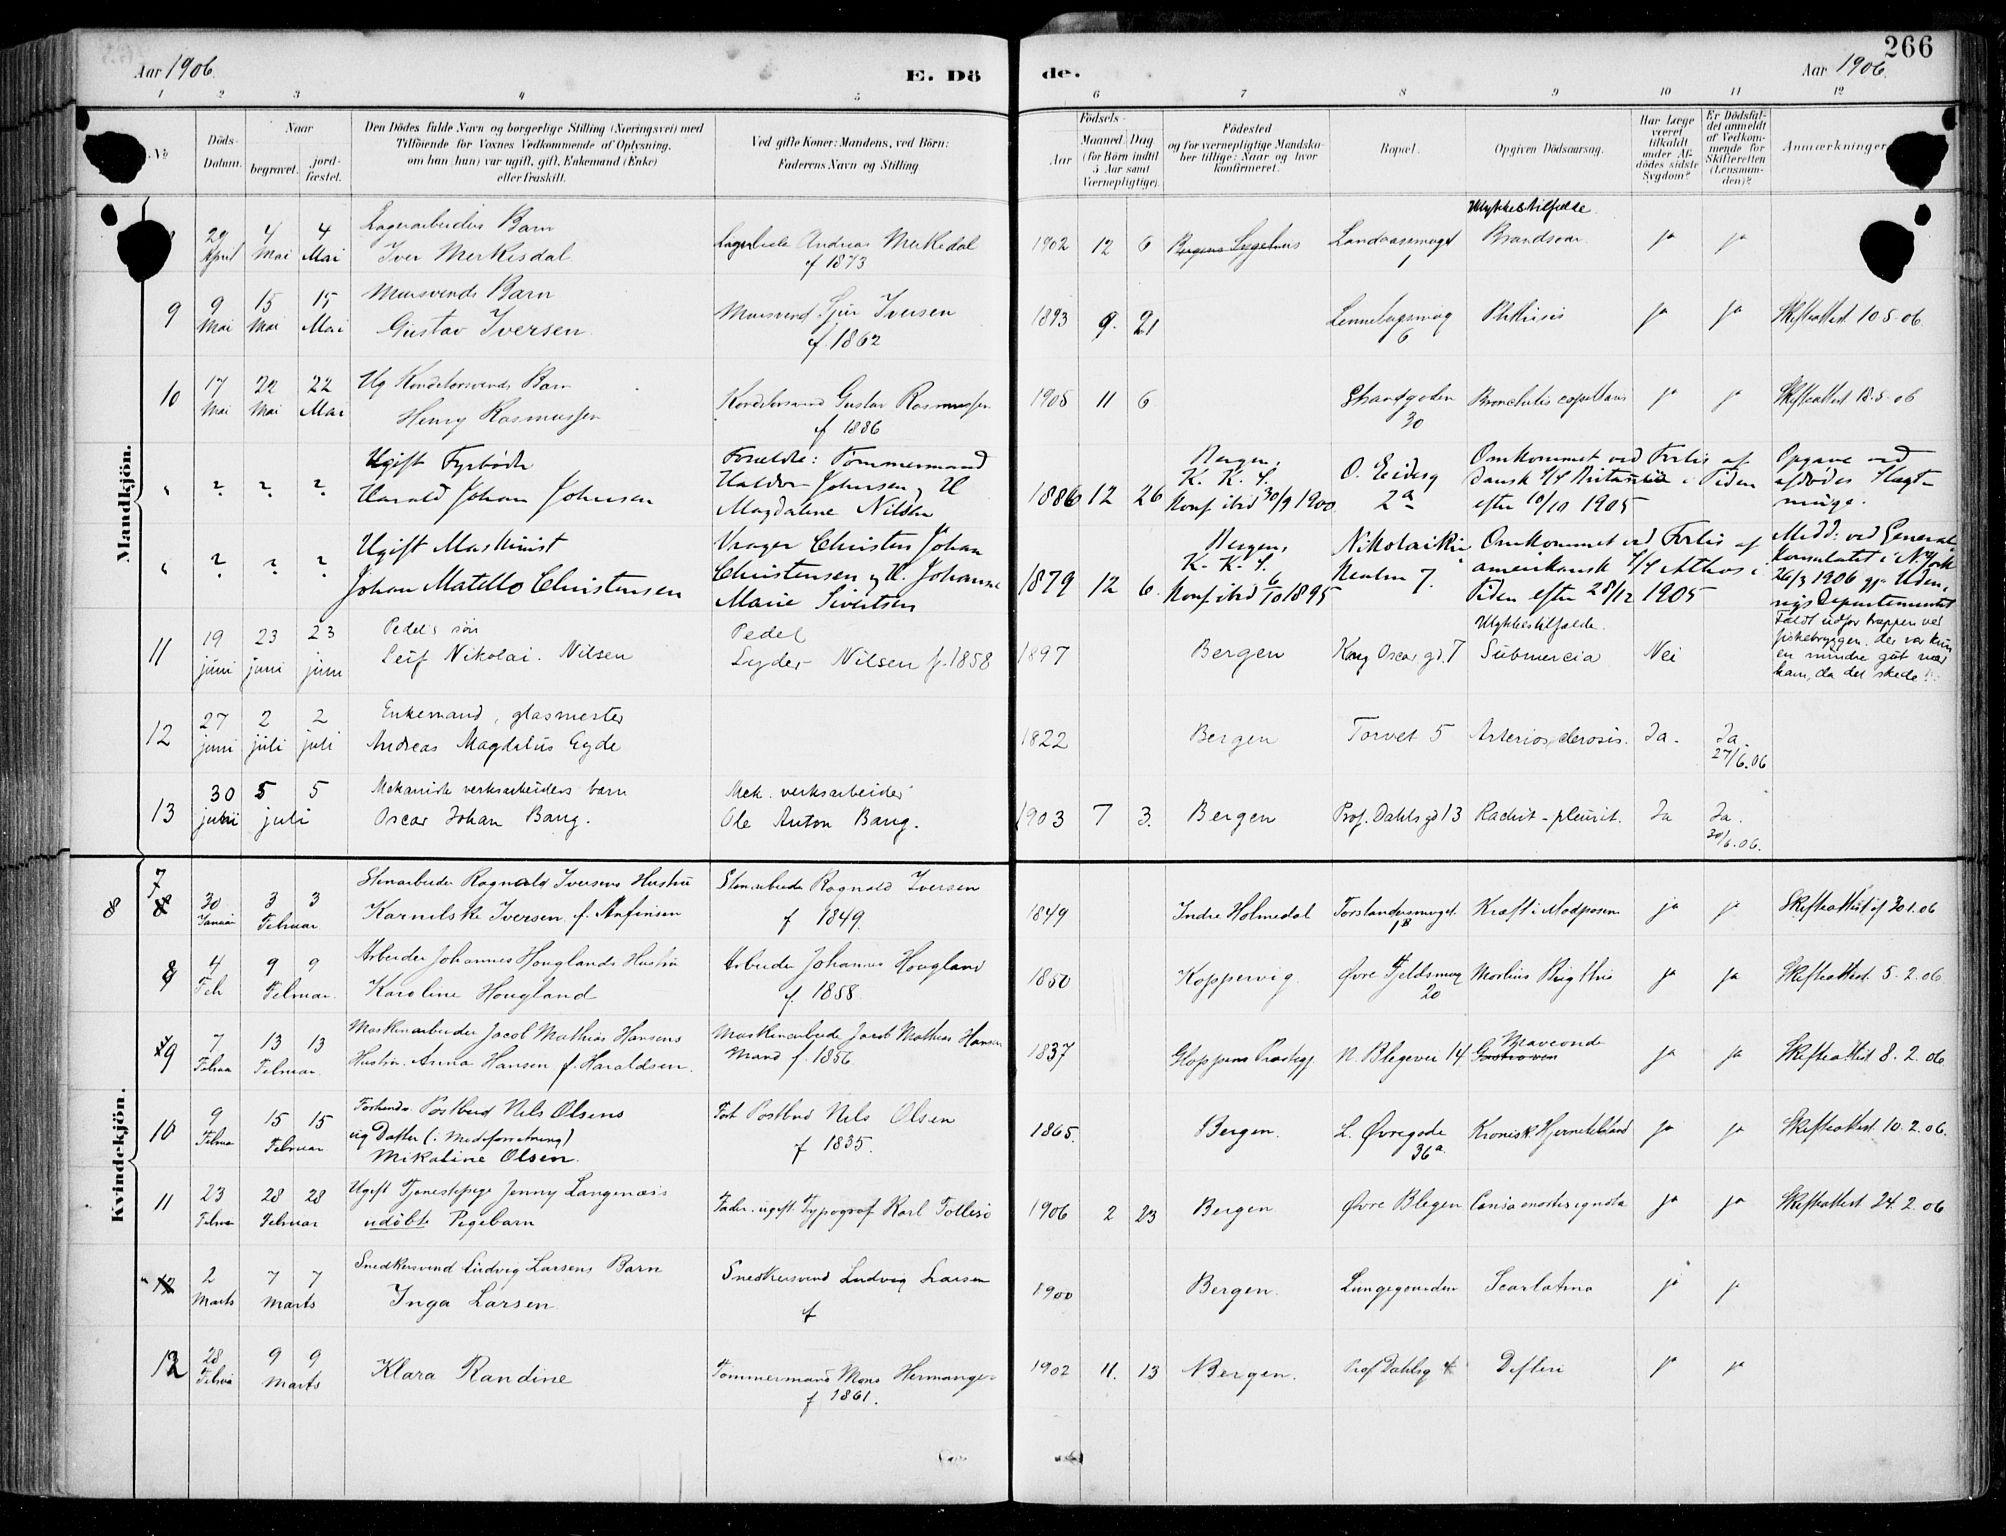 266
Aar 1906.
E. Dö
de.
Aar 1906.
1 2 3 4 5 6 7 8 9 10 11 12
No
Döds-Datum.
Naar
begravet.
jord-fæstet.
Den Dödes fulde Navn og borgerlige Stilling (Næringsvei) med
Tilföiende for Voxnes Vedkommende af Oplysning,
om han (hun) var ugift, gift, Enkemand (Enke)
eller fraskilt.
Ved gifte Koner: Mandens, ved Börn:
Faderens Navn og Stilling
Födsels-
Aar
Maaned
Dag
(for Börn indtil
5 Aar samt
Værnepligtige).
Födested
og for værnepligtige Mandskaber tillige: Naar og hvor
konfirmeret.
Bopæl.
Opgiven Dödsaarsag.
Har Læge
været
tilkaldt
under Afdödes sidste
Sygdom?
Er Dödsfaldet anmeldt
af Vedkommende for
Skifteretten
(Lensmanden)?
Anmærkninger
Mandkjön.
29 April 4 Mai 4 Mai
Lagerarbeiders Barn
Iver Merkesdal
Andreas Merkedal
f 1873
1902 12 6
Bergens Sygehus
Landaasmuget
1
Ulykkestilfælde.
Brandsaar.
ja ja
9 9 Mai 15 Mai 15 Mai
Mursvends Barn
Gustav Iversen
Mursvend Sjur Iversen
f. 1862
1893 9. 21
6
Phthisis
ja ja
Skifteattest 10.5.06
10 17 Mai 22 Mai 22 Mai
Ug Konditorsvends Barn
Henry Rasmussen
Konditorsvend Gustav Rasmussen
f 1886
1905 11 6
Strandgaden
30
Bronchitis capillaris
ja ja
Skifteattest 18.5.06
" ? ? ?
Ugift Fyrbøder
Harald Johan Johnsen
Forældre: Tømmermand
Haldor Johnsen og H
Magdalene Nilsen
1886 12 26
Bergen,
K. K. S.
Konf ibid 30/9 1900
O. Eidesg
2a
Omkommet ved Forlis af
dansk S/S Britannia i Tiden
efter 10/10 1905
Opgave ved
afdødes Slægtninge.
" ? ? ?
Ugift Maskinist
Johan Matello Christensen
Vrager Christen Johan
Christensen og H. Johanne
Marie Sivertsen
1879 12 6.
Bergen,
K. K. S.
Konf ibid 6/10 1895
Nikolaikir
7.
Omkommet ved Forlis af
amerikansk S/S Athos i
Tiden efter 28/12 1905
Medd: ved General
Konsulatet i N. York
26/3 1906 gj. Udenrigs Departementet
11 19 juni 23 juni 23 juni
Pedels søn
Leif Nikolai. Nilsen
Pedel
Lyder Nilsen f. 1858
1897
Bergen
Kong Oscar gd. 7
Ulykkestilfælde.
Submercia
Nei
Faldt udfor trappen ved
fiskebryggen, der var kun
en mindre gut nær
ham, da det skede
12 27 juni 2 juli 2 juli
Enkemand, glasmester
Andreas Magdalus Gyde
1822
Bergen
Torvet 5
Arteriosclerosis.
Ja.
Ja.
27/6.06
13 30 juni 5 5 juli
Mekanisk verksarbeiders barn
Oscar Johan Bang.
Mek. verksarbeider
Ole Anton Bang.
1903 7 3.
Bergen
Prof. Dahls gd 13
Rachit - pleurit.
Ja
Ja.
30/6.06.
Kvindekjön.
8 7 30 Januar 3 3 Februar
Stenarbeider Ragnald Iversens Hustru
Karnilske Iversen f. Anfinsen
Stenarbeider Ragnald Iversen
f 1849.
1849
Indre Holmedal
Forstandersmuget.
1B
Kræft i Madposen
ja ja
Skifteattest af 30.1.06
8 4 Feb 9 9 Februar.
Arbeider Johannes Houglands Hustru
Karoline Hougland
Arbeider Johannes Hougland
f. 1858.
1850
Koppervig
Øvre Fjeldsmug
20
Morbus Brigthii
ja ja
Skifteattest 5.2.06
9 7 Februar 13 13 Februar.
Maskinarbeider Jacob Mathias Hansens
Hustru Anna Hansen f. Haraldsen.
Maskinarbeider Jacob Mathias Hansen
Mand f. 1856
1837
Gloppens Præstegj.
N. Blegevei 14.
Maveonde
ja ja
Skifteattest 8.2.06
10 9 Februar 15 15 Februar
Postbud Nils Olsens
ug Datter (i Madforretning)
Mikaline Olsen.
Postbud Nils Olsen
f 1835.
1865.
Bergen.
L. Øvregade
36a.
Kronisk Hjerneblødning
ja ja
Skifteattest 10.2.06
11 23 Februar 28 28 Februar
Ugift Tjenestepige Jenny Langenæs's
udøbte Pigebarn
Fader. ugift Typograf Karl
1906 2 23
Bergen
Øvre Blegen
Causa mortis ignota
ja ja
Skifteattest 24.2.06
" 12 2 Marts 7 7 Marts
Snedkersvend Ludvig Larsens Barn
Inga Larsen
Snedkersvend Ludvig Larsen
f
1900
Bergen.
Lungegaarden
Scarlatina
ja ja
12 28 Februar 9 9 Marts
Klara Randine
Tømmermand Mons
f 1861.
1902 11. 13
Bergen.
Prof Dahlsg 4
Difteri
ja ja